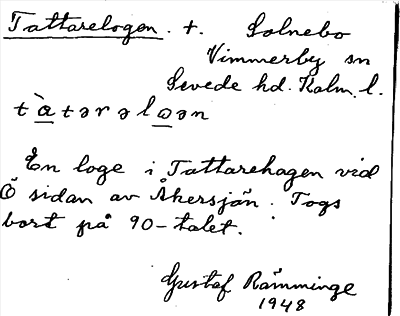 Tattarelogen. t. Solnebo
Vimmerby sn
Sevede hd. Kalm. l.
tàtərəloən
En loge i Tattarehagen vid
Ö sidan av Åkersjön. Togs
bort på 90-talet.
Gustaf Rämminge
1948